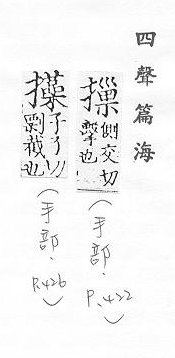 四聲篇海
摷側交切
擊也
(手部.P.422)
子了切
剿截也
(手部.P.426)